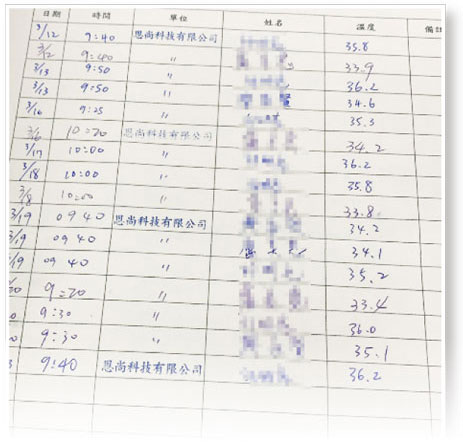 日期 時間 單位 姓名 溫度 備註
3/12 9:40 恩尚科技有限公司 35.8
3/12 9:40 〃 33.9
3/13 9:50 〃 36.2
3/13 9:50 〃 34.6
3/16 9:25 〃 35.3
3/6 10:20 恩尚科技有限公司 34.2
3/17 10:00 〃 36.2
3/18 10:00 〃 35.8
3/8 10:00 〃 33.8
3/19 09 40 恩尚科技有限公司 34.2
3/19 09 40 〃 34.1
/19 09 40 〃 35.2
9:20 〃 33.4
9:30 〃 36.0
9:30 〃 35.1
9:40 恩尚科技有限公司 36.2